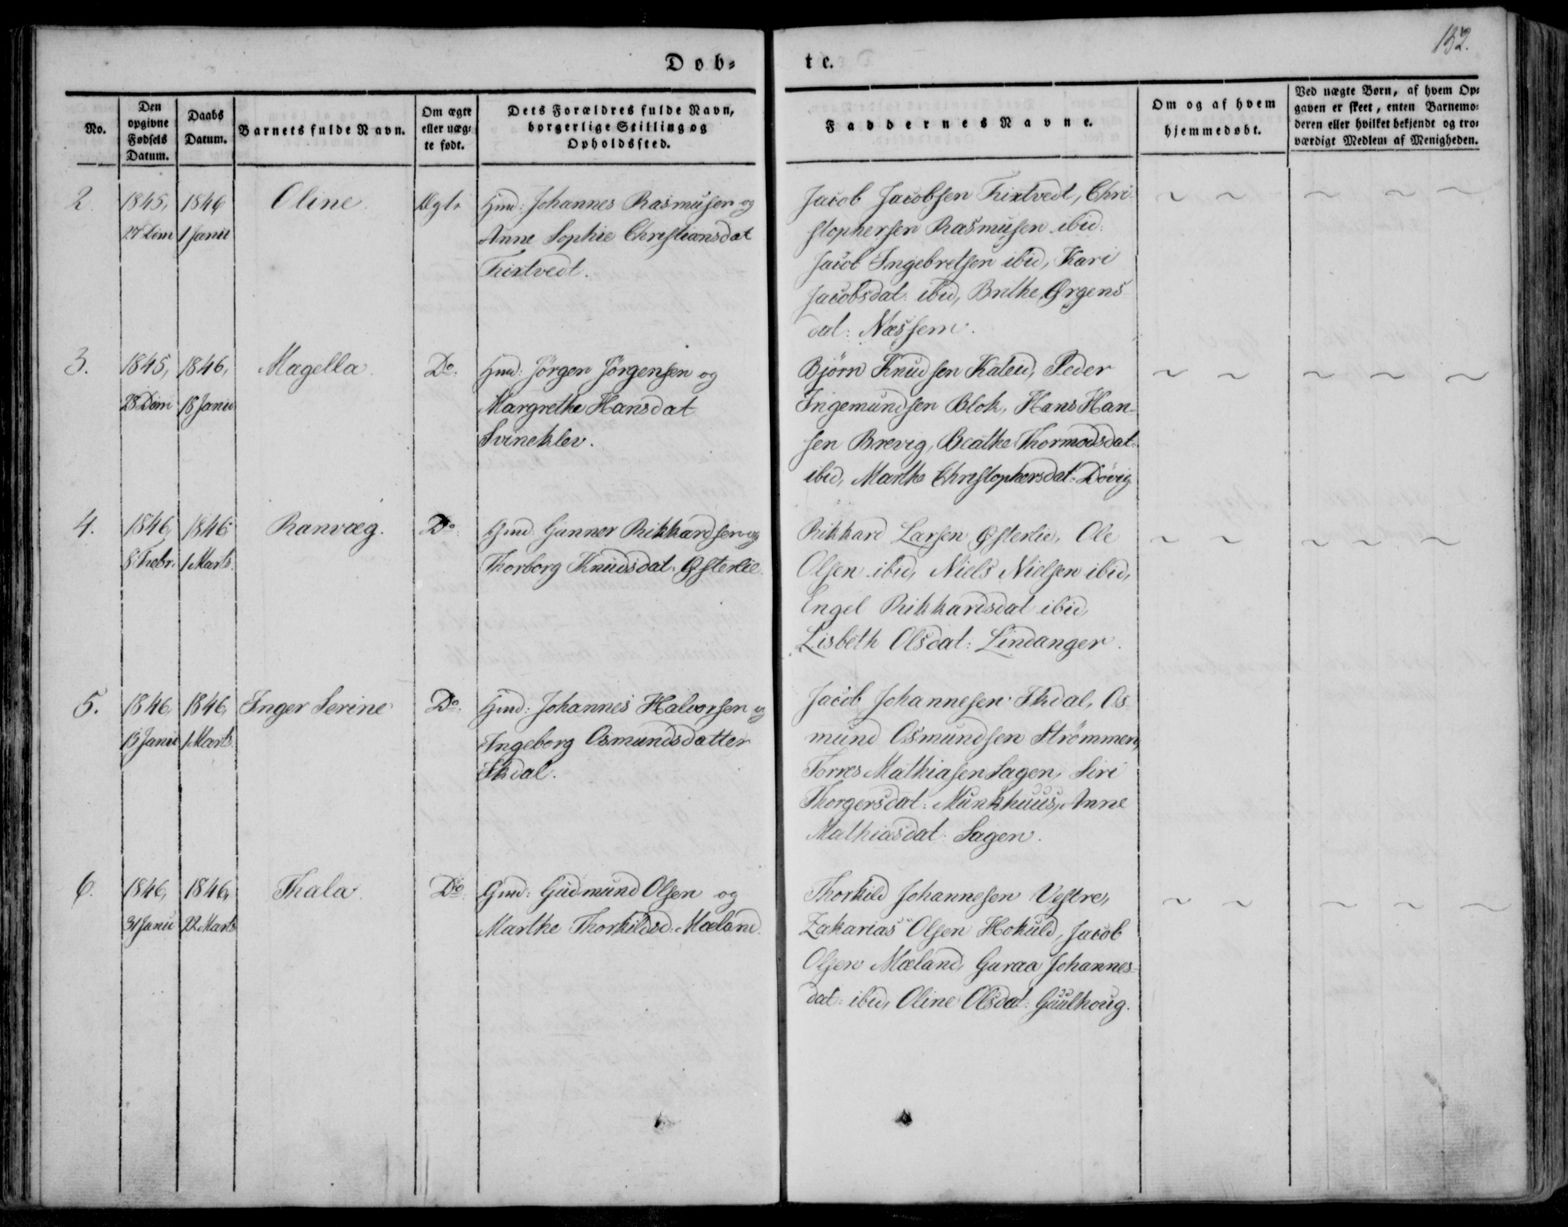 152.
Døb= te.
No.
Den opgivne Fødsels Datum.
Daabs Datum.
Barnets fulde Navn.
Om ægte eller uæg= te født.
Dets Forældres fulde Navn, borgerlige Stilling og Opholdssted.
Faddernes Navne.
Om og af hvem hjemmedøbt.
Ved uægte Børn, af hvem Op= gaven er skeet, enten Barnemo= deren eller hvilket bekjendt og tro= værdigt Medlem af Menigheden.
2. 1845, 1846 Oline. Ægte Gmd: Johannes Rasmusen og
27 Dem 1 Janu Anne Sophie Christiansdat
Tixtvedt.
Jacob Jacobsen Tixtvedt, Chri-
stophersen Rasmusen ibid.
Jacob Ingebretsen ibid, Kari
Jacobsdat: ibid, Brethe Ørgens-
dat: Næssem.
3. 1845, 1846, Magella. Do. Gmd: Jørgen Jørgensen og
28 Dem 18 Janu Margrethe Hansdat
Svineklev.
Bjørn Knudsen Kaleid, Peder
Ingemundsen Blok, Hans Han-
sen Brevig, Beathe Thormodsdat
ibid, Marthe Christophersdat: Døvig
4. 1846, 1846 Ranvæg. Do. Gmd: Gunner Rikkardsen og
5 Febr. 1 Marts Thorborg Knudsdat: Østerlie.
Rikkard Larsen Østerlie, Ole
Olsen ibid, Niels Nielsen ibid,
Engel Rikkardsdat ibid,
Lisbeth Olsdat: Lindanger.
5. 1846 1846, Inger Serine Do. Gmd: Johannes Halvorsen og
13 Janu 1 Marts Ingeborg Osmundsdatter
Skdal.
Jacob Johannesen Skdal, Os-
mund Osmundsen Strømmen,
Torres Mathiasen Sagen, Siri
Thorgersdat: Munkhuus, Anne
Mathiasdat: Sagen.
6. 1846, 1846, Thala. Do. Gmd: Gudmund Olsen og
31 Janu 22 Marts Marthe Thorkildsd. Mæland.
Thorkild Johannesen Vestre,
Zakarias Olsen Hokuld, Jacob
Olsen Mæland, Garaa Johannes-
dat: ibid, Oline Olsdat: Guulhoug.